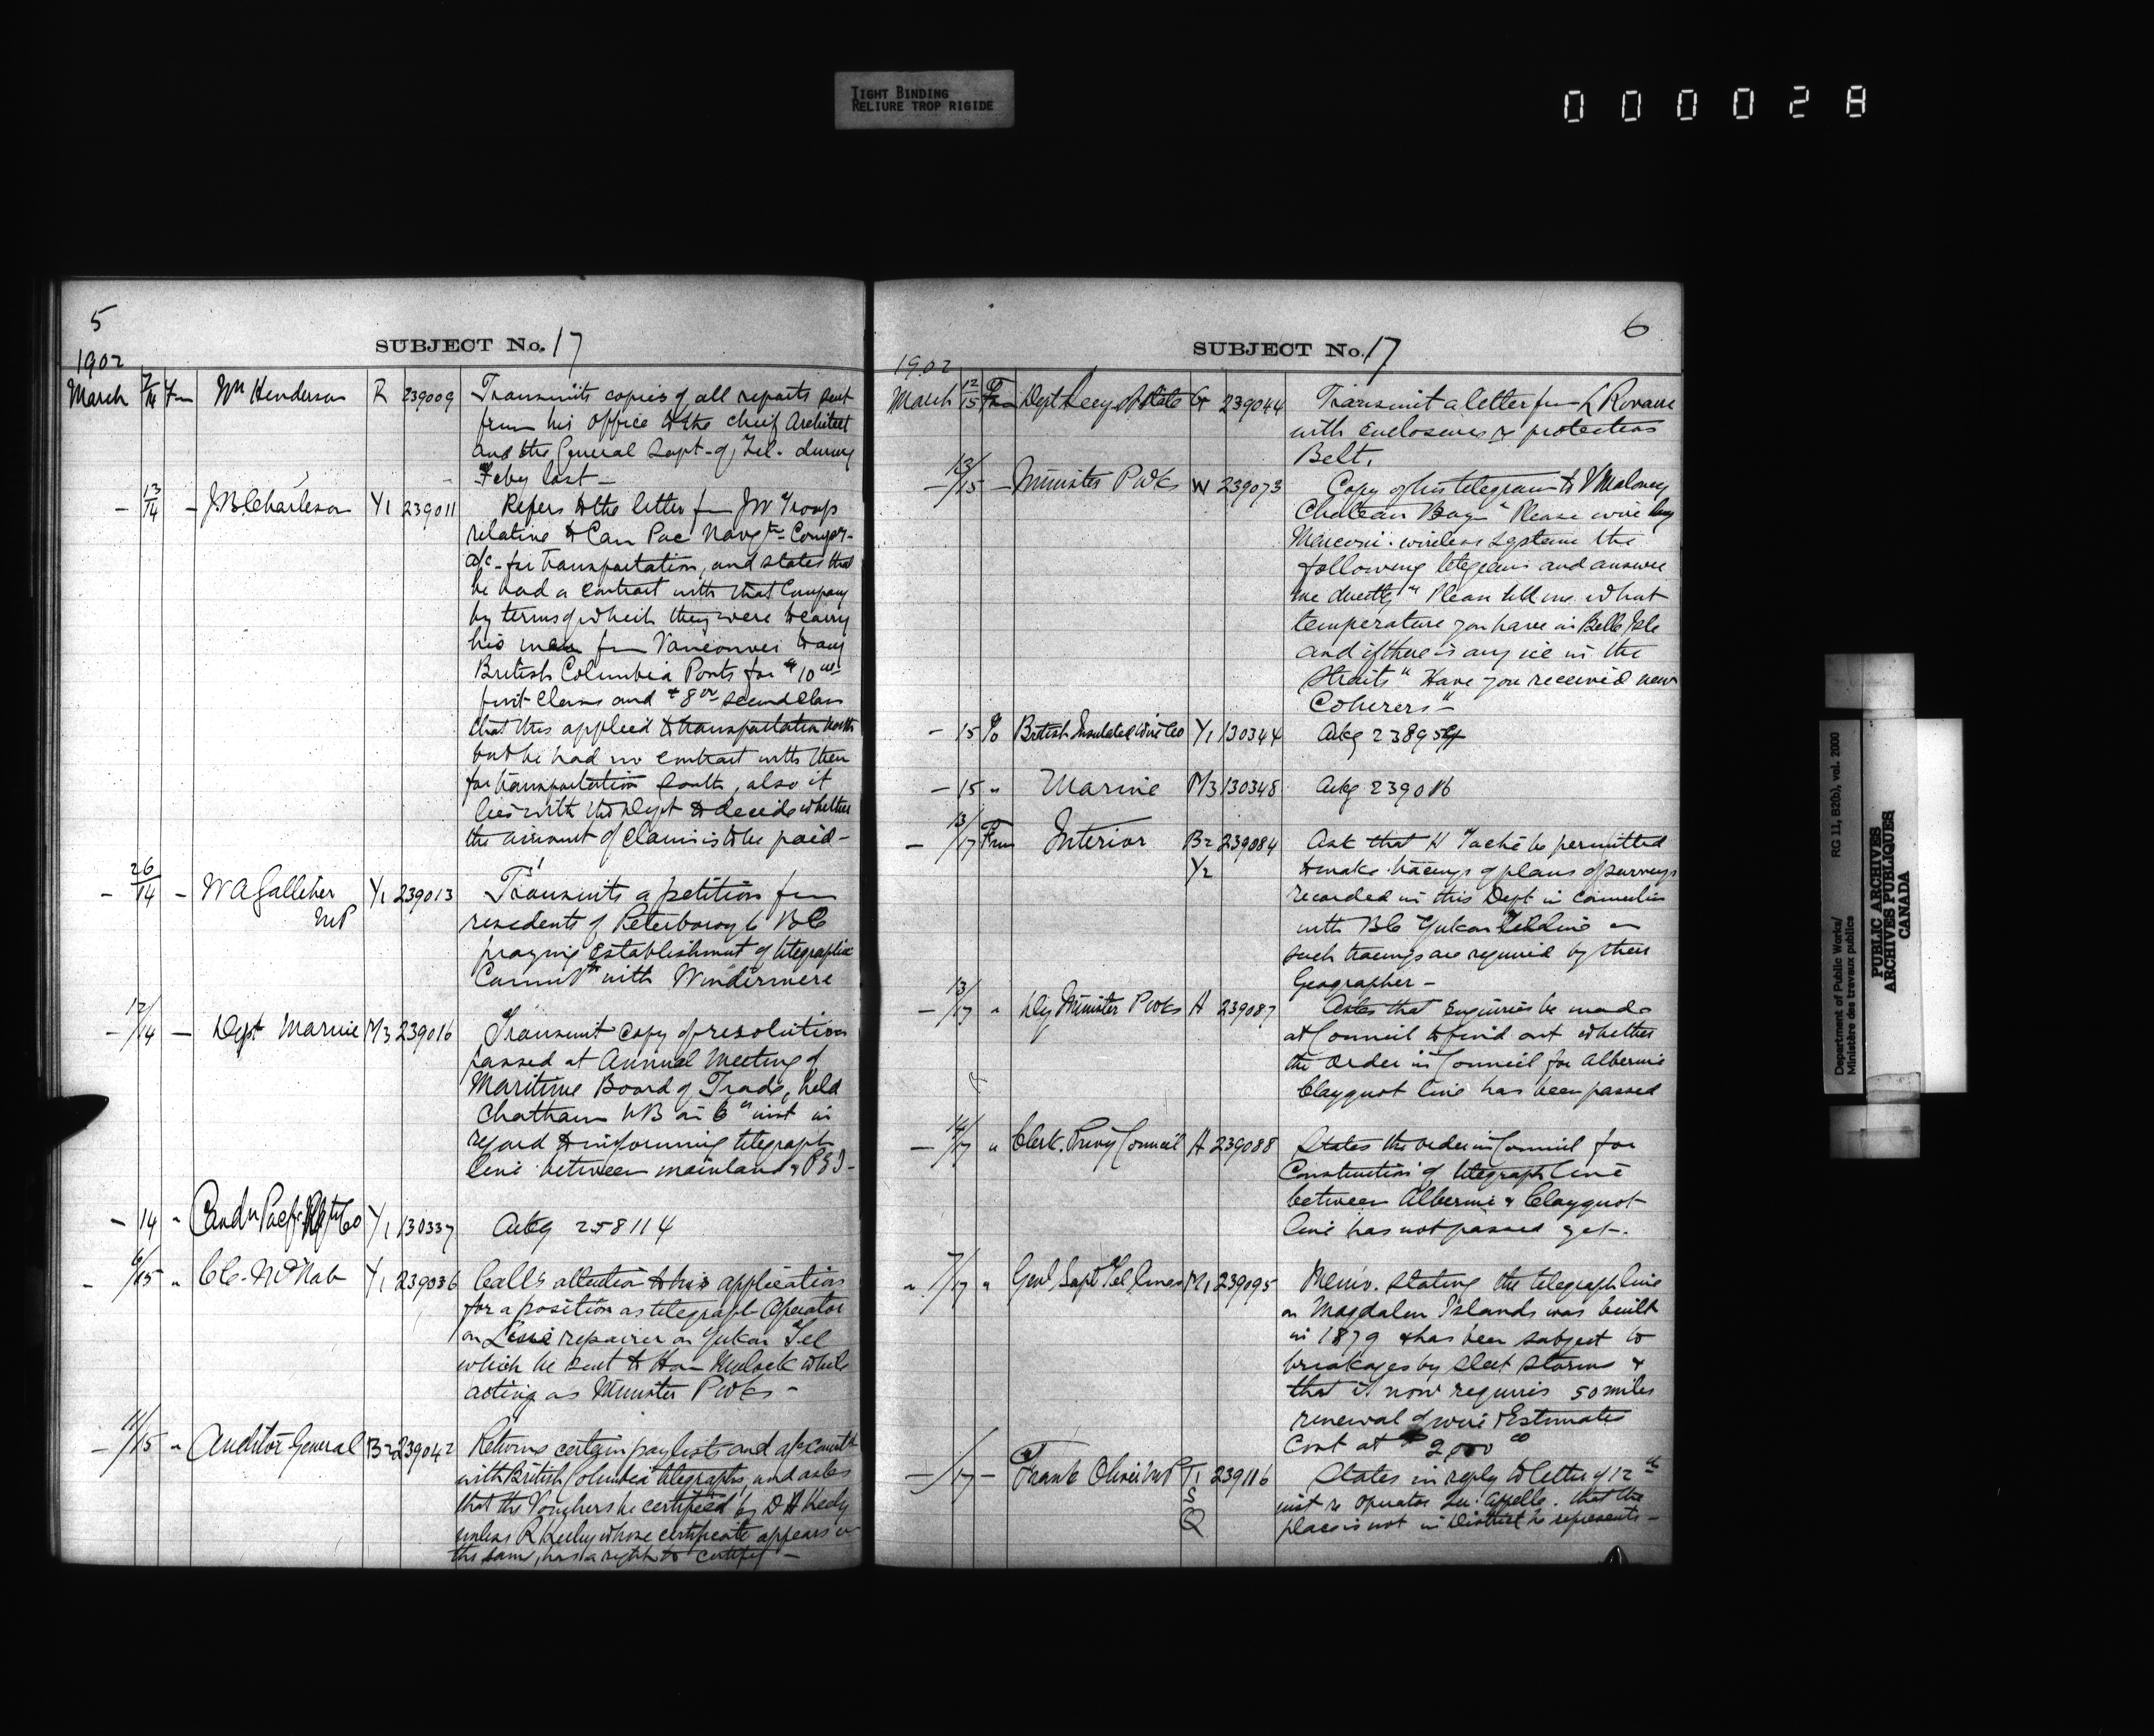 TIGHT BINDING
RELIURE TROP RIGIDE
000028
5
SUBJECT No. 17
1902
March 7/14 Fm Wm Henderson R 239009 Transmits copies of all reports sent
from his office to the chief Architect
and the General Supt. of Tel. during
Feby last —
— 13/14 — J.B. Charleson Y1 239011 Refers to the letter fm JW Troup
relative to Can Pac Navgtn Compy-
a/c - for transportation, and states that
he had a contract with that Company
by terms of which they were to carry
his men fm Vancouver to any
British Columbia Ports for $10 00
first class and $8 00 second class
that this applied to transportation north
but he had no contract with them
for transportation South, also it
lies with the Dept to decide whether
the amount of claim is to be paid —
— 26/14 — W A Galliher Y1 239013 Transmits a petition fm
MP
residents of Peterborough BC
praying establishment of telegraphic
Commtn with Windermere
— 12/14 — Dept Marine M3 239016 Transmit copy of resolution
passed at Annual Meeting of
Maritime Board of Trade, held
Chatham NB on 6" inst in
regard to telegraph
line between mainland & PEI -
— 14 " Y1 130337 Ackg 258114
— 6/15 " CC. McNab Y1 239036 Calls attention to his application
for a position as telegraph Operator
or Line repairer on Yukon Tel
which he sent to Hon Mulock while
acting as Minister P Wks —
— 11/15 " Auditor General B2 239042 Returns certain paylists and a/cs
with British Columbia telegraphs, and asks
that the Vouchers be certified by D H Keely
unless R Keeley whose certificate appears on
the same, has a right to certify —
6
SUBJECT No. 17
1902
March 12/15 Fm Dept Secy of State G 239044 Transmit a letter fm L
with enclosures re protection
Belt.
— 13/15 — Minister P Wks W 239073 Copy of his telegram to V Maloney
Chateau Bay "Please wire by
Marconi wireless system the
following telegram and answer
me directly " Please tell me what
temperature you have in Belle Isle
and if there is any ice in the
Straits " Have you received new
Coherers" —
— 15 To British Insulated Wire Co Y1 130344 Ackg 238954
— 15 " Marine M3 130348 Ackg 239016
— 13/17 From Interior B2 239084 Ask that H Taché be permitted
Y2
to make tracings of plans of surveys
recorded in this Dept in connection
with BC Yukon Tel line as
such tracings are required by their
Geographer —
— 13/17 " Dy Minister P Wks A 239087 Asks that enquiries be made
at Council to find out whether
the Order in Council for Alberni
Clayquot line has been passed
— 14/17 " Clerk. Privy Council A 239088 States the order in Council for
Construction of telegraph line
between Alberni & Clayquot
line has not passed yet —.
" 7/17 " Genl Supt Tel lines M1 239095 Memo. stating the telegraph line
on Magdalen Islands was built
in 1879 & has been subject to
breakages by sleet storms &
that it now requires 50 miles
renewal of wire & Estimates
Cost at $2,000 00
— /17 — Frank Oliver MP T1 239116 States in reply to letter of 12th
S
inst re Operator Qu'Appelle. that the
Q
place is not in District he represents —
Department of Public Works/
Ministère des travaux publics
RG 11, B2(b), vol. 2000
PUBLIC ARCHIVES
ARCHIVES PUBLIQUES
CANADA